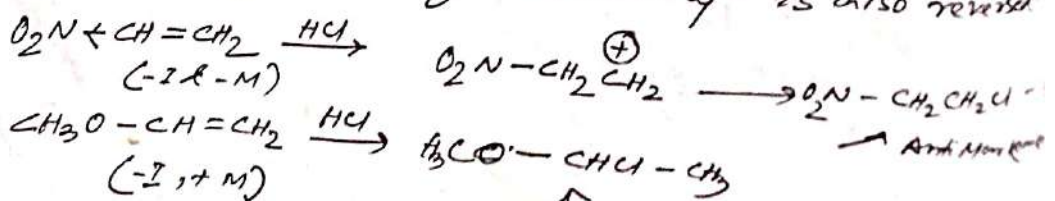 is also reversed
O₂N ← CH = CH₂ —HCl→ O₂N – CH₂ C⊕H₂ ⟶ O₂N – CH₂CH₂Cl
(-I & -M)
CH₃O – CH = CH₂ —HCl→ H₃CO – CHCl – CH₃
(-I, + M)